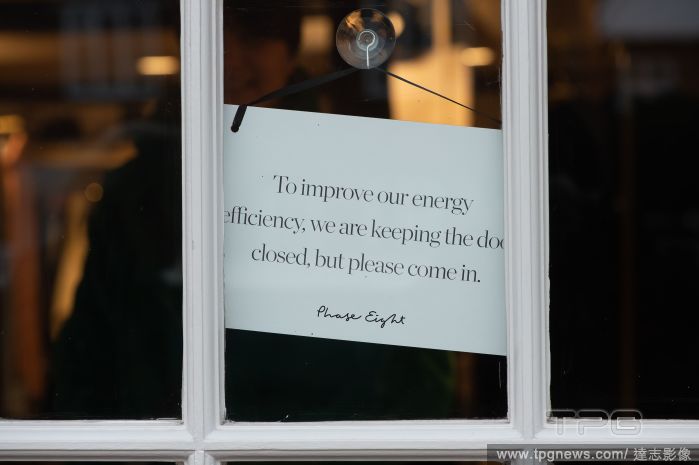 To improve our energy
efficiency, we are keeping the doo
closed, but please come in.
Phase Eight
TPG
www.tpgnews.com/ 達志影像